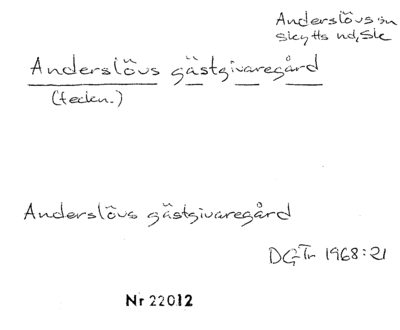 Anderslövs sn
Skytts hd, Sk
Anderslövs gästgivaregård
(teckn.)
Anderslövs gästgivaregård
DGTr 1968:21
Nr 22012